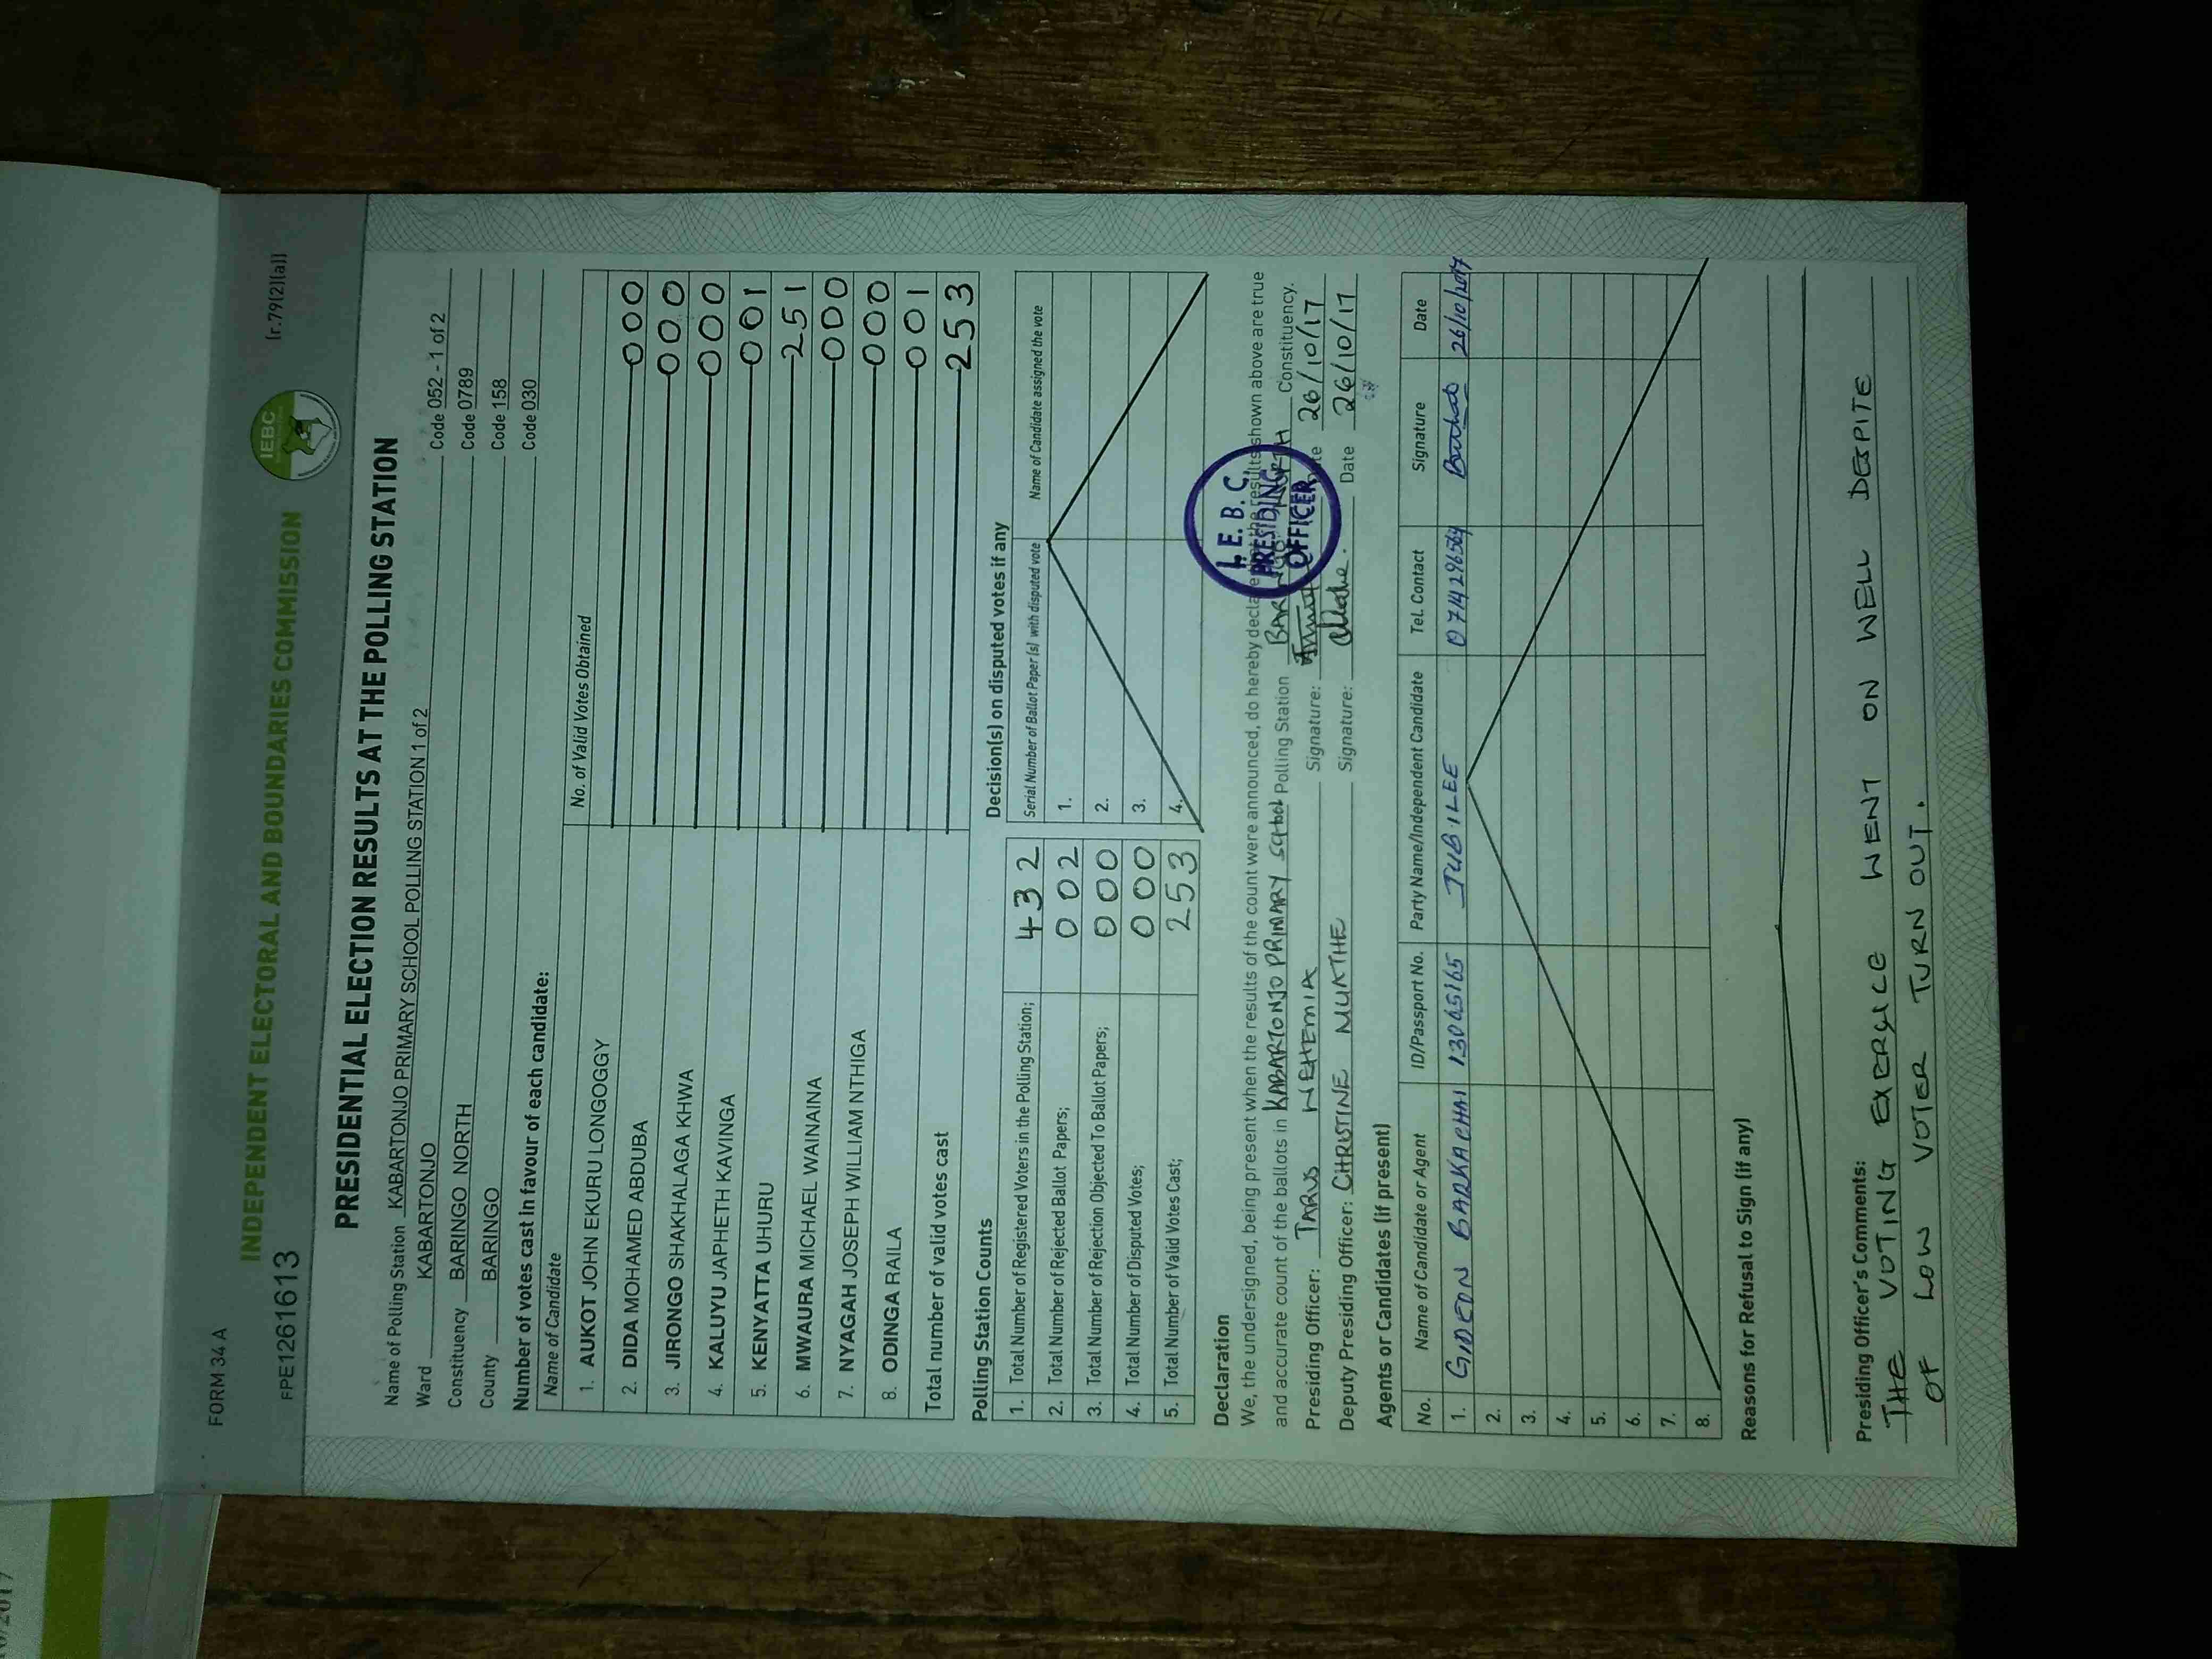 FORM 34 A
INDEPENDENT ELECTORAL AND BOUNDARIES COMMISSION
IEBC
[r.79(2)(a)]
FPE1261613
PRESIDENTIAL ELECTION RESULTS AT THE POLLING STATION
Name of Polling Station KABARTONJO PRIMARY SCHOOL POLLING STATION 1 of 2 Code 052 - 1 of 2
Ward KABARTONJO Code 0789
Constituency BARINGO NORTH Code 158
County BARINGO Code 030
Number of votes cast in favour of each candidate:
Name of Candidate No. of Valid Votes Obtained
1. AUKOT JOHN EKURU LONGOGGY 000
2. DIDA MOHAMED ABDUBA 000
3. JIRONGO SHAKHALAGA KHWA 000
4. KALUYU JAPHETH KAVINGA 001
5. KENYATTA UHURU 251
6. MWAURA MICHAEL WAINAINA 000
7. NYAGAH JOSEPH WILLIAM NTHIGA 000
8. ODINGA RAILA 001
Total number of valid votes cast 253
Polling Station Counts
1. Total Number of Registered Voters in the Polling Station; 432
2. Total Number of Rejected Ballot Papers; 002
3. Total Number of Rejection Objected To Ballot Papers; 000
4. Total Number of Disputed Votes; 000
5. Total Number of Valid Votes Cast; 253
Decision(s) on disputed votes if any
Serial Number of Ballot Paper (s) with disputed vote Name of Candidate assigned the vote
1.
2.
3.
4.
Declaration
We, the undersigned, being present when the results of the count were announced, do hereby declare the results shown above are true
and accurate count of the ballots in KABARTONJO PRIMARY SCHOOL Polling Station Constituency.
Presiding Officer: TARUS NEHEMIA Signature: Date 26/10/17
Deputy Presiding Officer: CHRISTINE MUKTHE Signature: Date 26/10/17
I. E. B. C.
PRESIDING
OFFICER
Agents or Candidates (if present)
No. Name of Candidate or Agent ID/Passport No. Party Name/Independent Candidate Tel. Contact Signature Date
1. GIDEON BARKACHAI 13065165 JUBILEE 0714296564 26/10/2017
2.
3.
4.
5.
6.
7.
8.
Reasons for Refusal to Sign (if any)
Presiding Officer's Comments:
THE VOTING EXERCICE WENT ON WELL DESPITE
OF LOW VOTER TURN OUT.